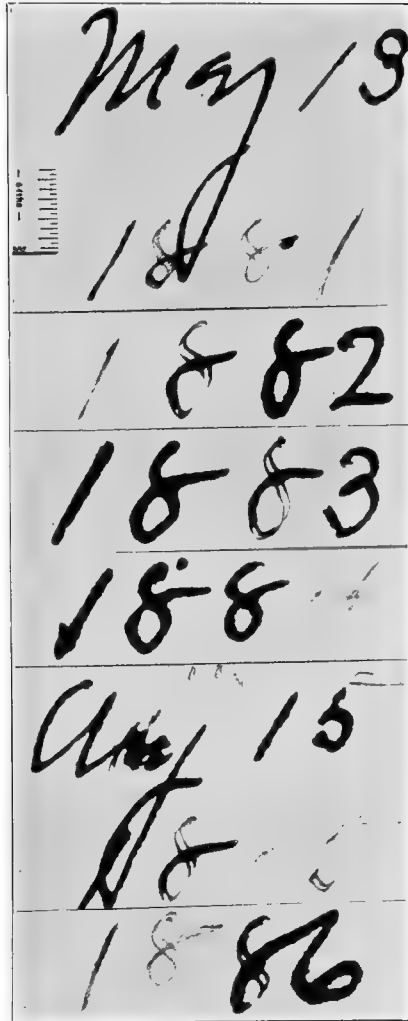 May 13
1881
1882
1883
188
Aug 15
18
1886